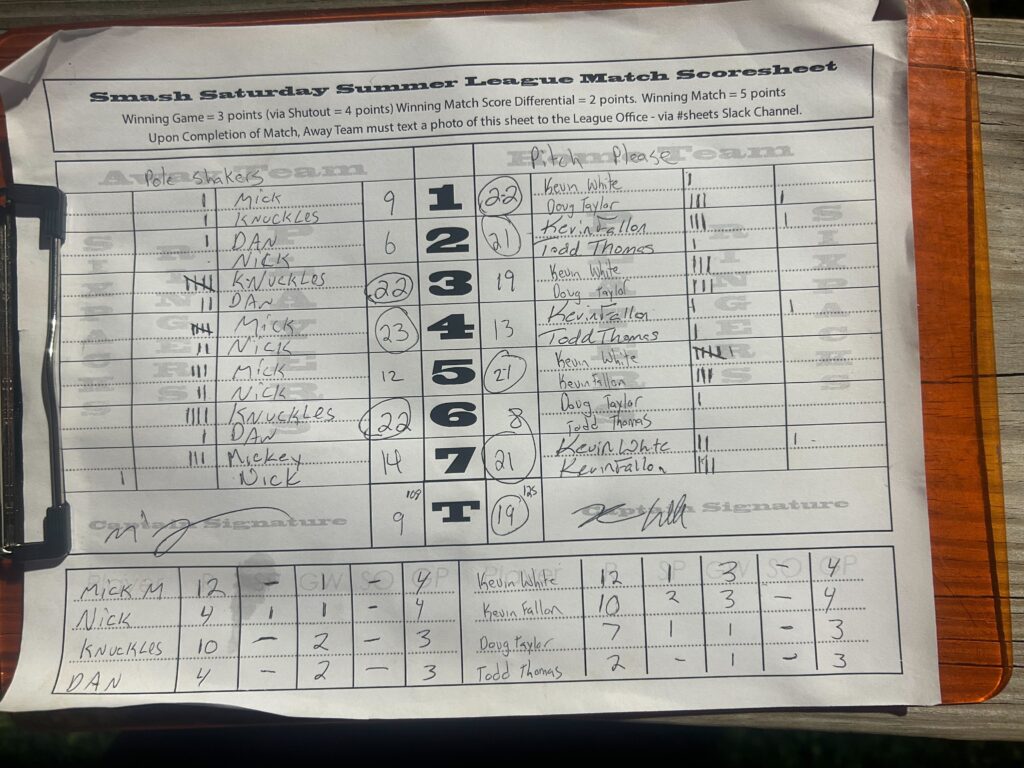 Smash Saturday Summer League Match Scoresheet
Winning Game = 3 points (via Shutout = 4 points) Winning Match Score Differential = 2 points. Winning Match = 5 points
Upon Completion of Match, Away Team must text a photo of this sheet to the League Office - via #sheets Slack Channel.
Away Team Home Team
Pole Shakers Pitch Please
I Mick 9 1 22 Kevin White I
I Knuckles Doug Taylor III I
I DAN 6 2 21 Kevin Fallon III I
NICK Todd Thomas I
IIII Knuckles 22 3 19 Kevin White III
II DAN Doug Taylor III
IIII Mick 23 4 13 Kevin Fallon I I
II NICK Todd Thomas I
III Mick 12 5 21 Kevin White IIII I
II NICK Kevin Fallon III
IIII Knuckles 22 6 8 Doug Taylor I
I DAN Todd Thomas
III Mickey 14 7 21 Kevin White II I
I Nick Kevin Fallon IIII
109 125
9 T 19
Captain Signature Captain Signature
SIXPACKS RINGERS PLAYERS RINGERS SIXPACKS
Player R SP GW SO GP Pioneer R SP GW SO GP
Mick M 12 - 1 - 4 Kevin White 12 1 3 - 4
Nick 4 1 1 - 4 Kevin Fallon 10 2 3 - 4
Knuckles 10 - 2 - 3 Doug Taylor 7 1 1 - 3
DAN 4 - 2 - 3 Todd Thomas 2 - 1 - 3